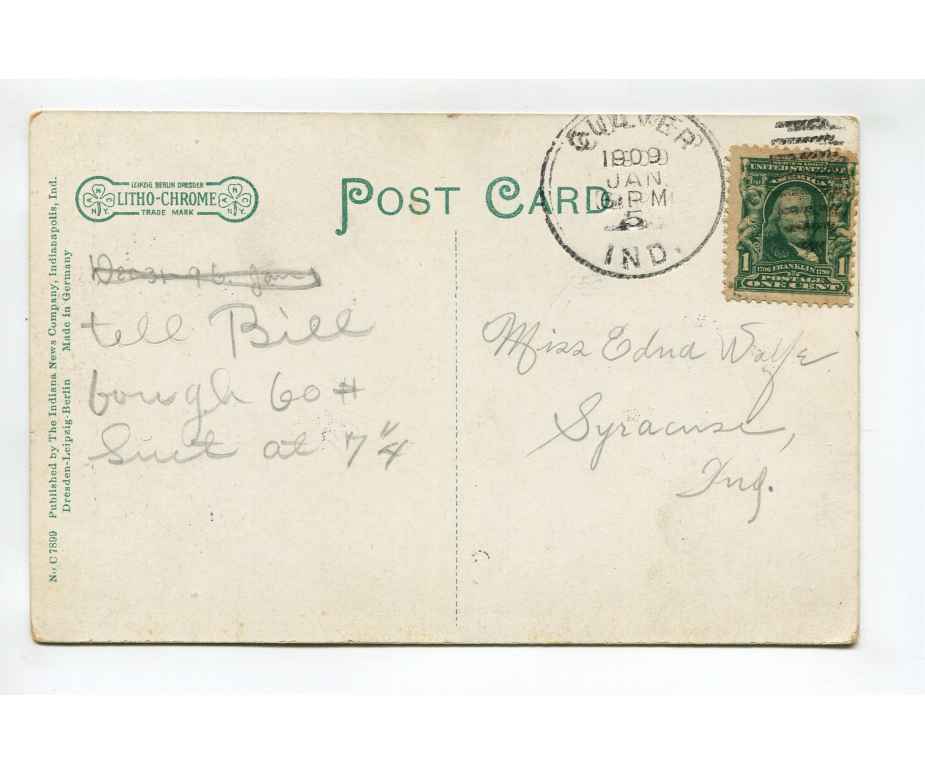 LEIPZIG BERLIN DRESDEN
LITHO-CHROME
TRADE MARK
N N Y
N N Y
POST CARD
CULVER
1909
JAN
5
6 PM
IND.
UNITED STATES OF AMERICA
1706 FRANKLIN 1790
1 1
POSTAGE
ONE CENT
tell Bill
bough 60#
Suet at 7 1/4
Miss Edna Wolfe
Syracuse,
Ind.
No C 7899 Published by The Indiana News Company, Indianapolis, Ind.
Dresden-Leipzig-Berlin Made in Germany